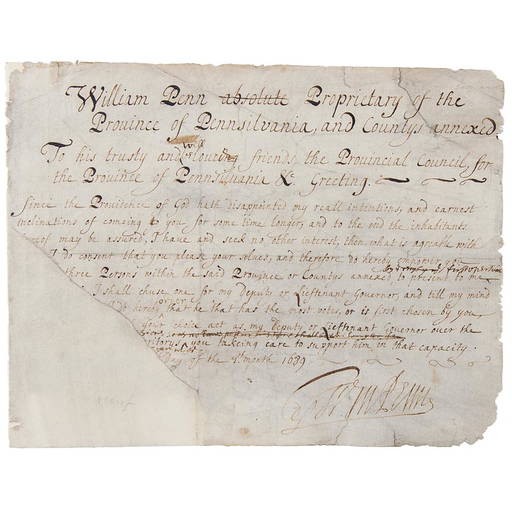 William Penn absolute Proprietary of the
Province of Pennsilvania, and Countys annexed
To his trusty and well loving friends the Provincial Council for
the Province of Pennsilvania &c Greeting.
Since the Providence of God hath disapointed my reall intentions, and earnest
inclinations of comeing to you for some time longer, and to the end the inhabitants
of may be assured, I have and seek no other interest, then what is agreable with
I do consent that you please your selves, and therefore do hereby empower you
three Persons within the said Province or Countys annexed to present to me
I shall chuse one for my Deputy or Lieftenant Governor, and till my mind
do hereby that he that has the most votes, or is first chosen by you
your choice act as my Deputy or Lieftenant Governor over the
you taking care to support him in that capacity.
Day of the month 1689
Wm Penn